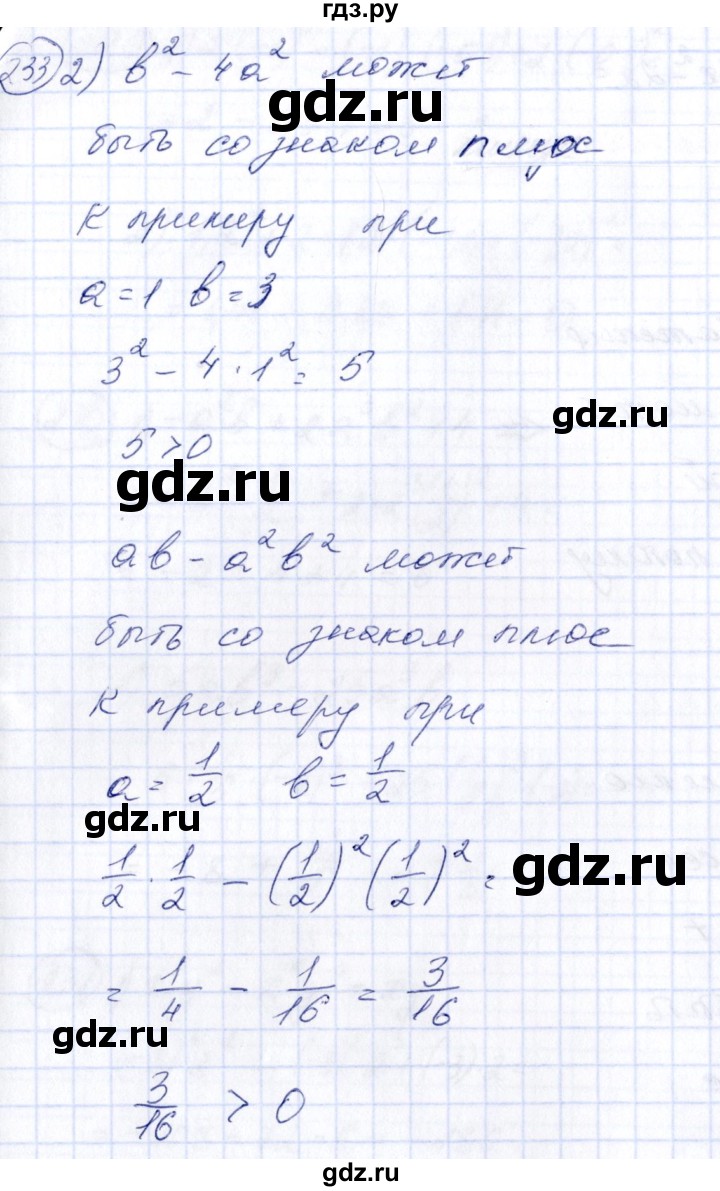 гдз.ру
233 2) b² - 4a² может
быть со знаком плюс
К примеру при
a = 1 b = 3
3² - 4 · 1² = 5
gdz.ru
gdz.ru
5 > 0
gdz.ru
ab - a²b² может
быть со знаком плюс
К примеру при
a = 1/2 b = 1/2
gdz.ru
1/2 · 1/2 - (1/2)² (1/2)² =
gdz.ru
= 1/4 - 1/16 = 3/16
gdz.ru
3/16 > 0
gdz.ru